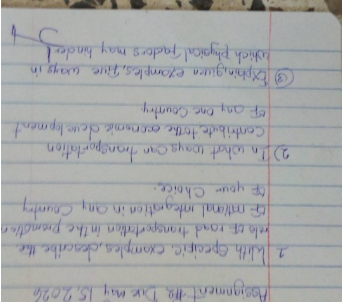 Assignment #2 Due May 15, 2026
1. With specific examples, describe the
role of road transportation in the promotion
of national integration in any Country
of your choice.
2) In what ways can transportation
Contribute to the economic development
of any one Country
③ Explain, given examples, five ways in
which physical factors may hinder